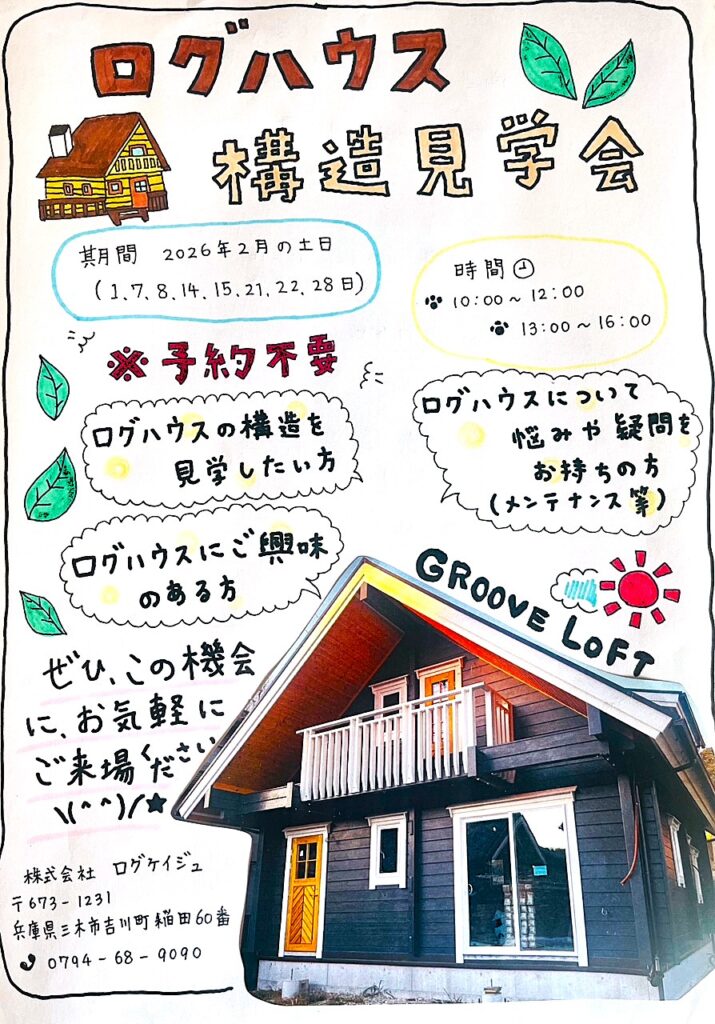 ログハウス
構造見学会
期間 2026年2月の土日
(1.7.8.14.15.21.22.28日)
時間
10:00～12:00
13:00～16:00
※予約不要
ログハウスの構造を
見学したい方
ログハウスについて
悩みや疑問を
お持ちの方
(メンテナンス等)
ログハウスにご興味
のある方
GROOVE LOFT
ぜひ、この機会
に、お気軽に
ご来場ください
\(^^)/★
株式会社 ログケイジュ
〒673-1231
兵庫県三木市吉川町稲田60番
0794-68-9090